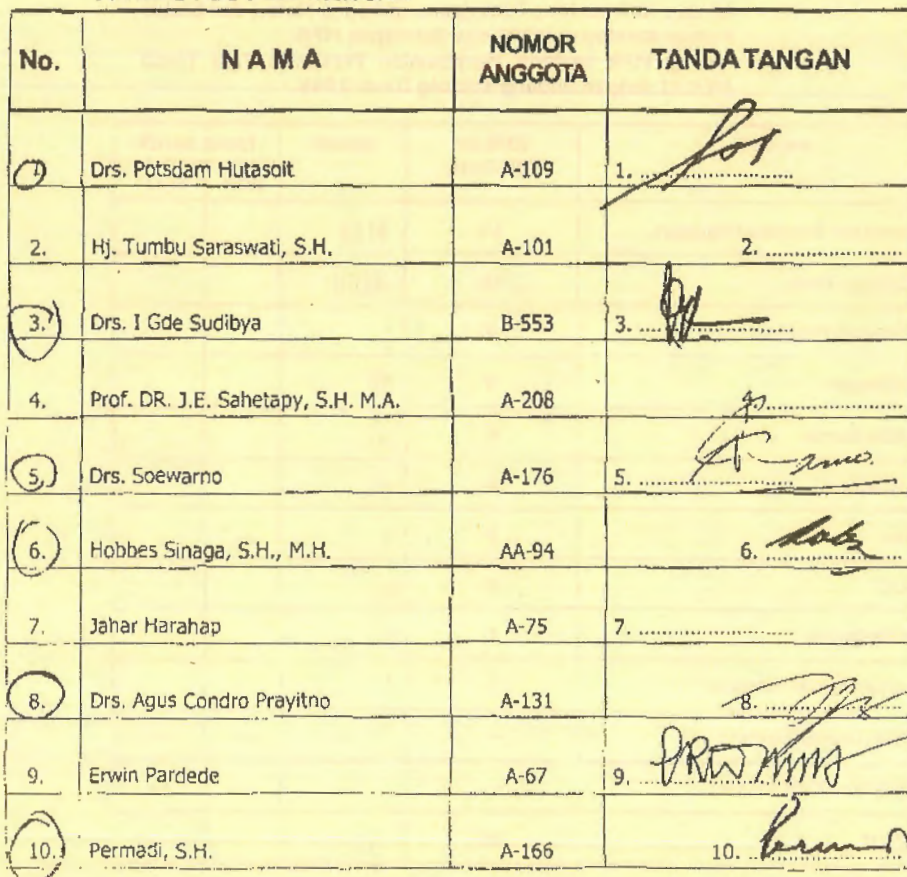 No. NAMA NOMOR ANGGOTA TANDA TANGAN
1. Drs. Potsdam Hutasoit A-109 1. ....................
2. Hj. Tumbu Saraswati, S.H. A-101 2. ....................
3. Drs. I Gde Sudibya B-553 3. ....................
4. Prof. DR. J.E. Sahetapy, S.H. M.A. A-208 4. ....................
5. Drs. Soewarno A-176 5. ....................
6. Hobbes Sinaga, S.H., M.H. AA-94 6. ....................
7. Jahar Harahap A-75 7. ....................
8. Drs. Agus Condro Prayitno A-131 8. ....................
9. Erwin Pardede A-67 9. ....................
10. Permadi, S.H. A-166 10. ....................